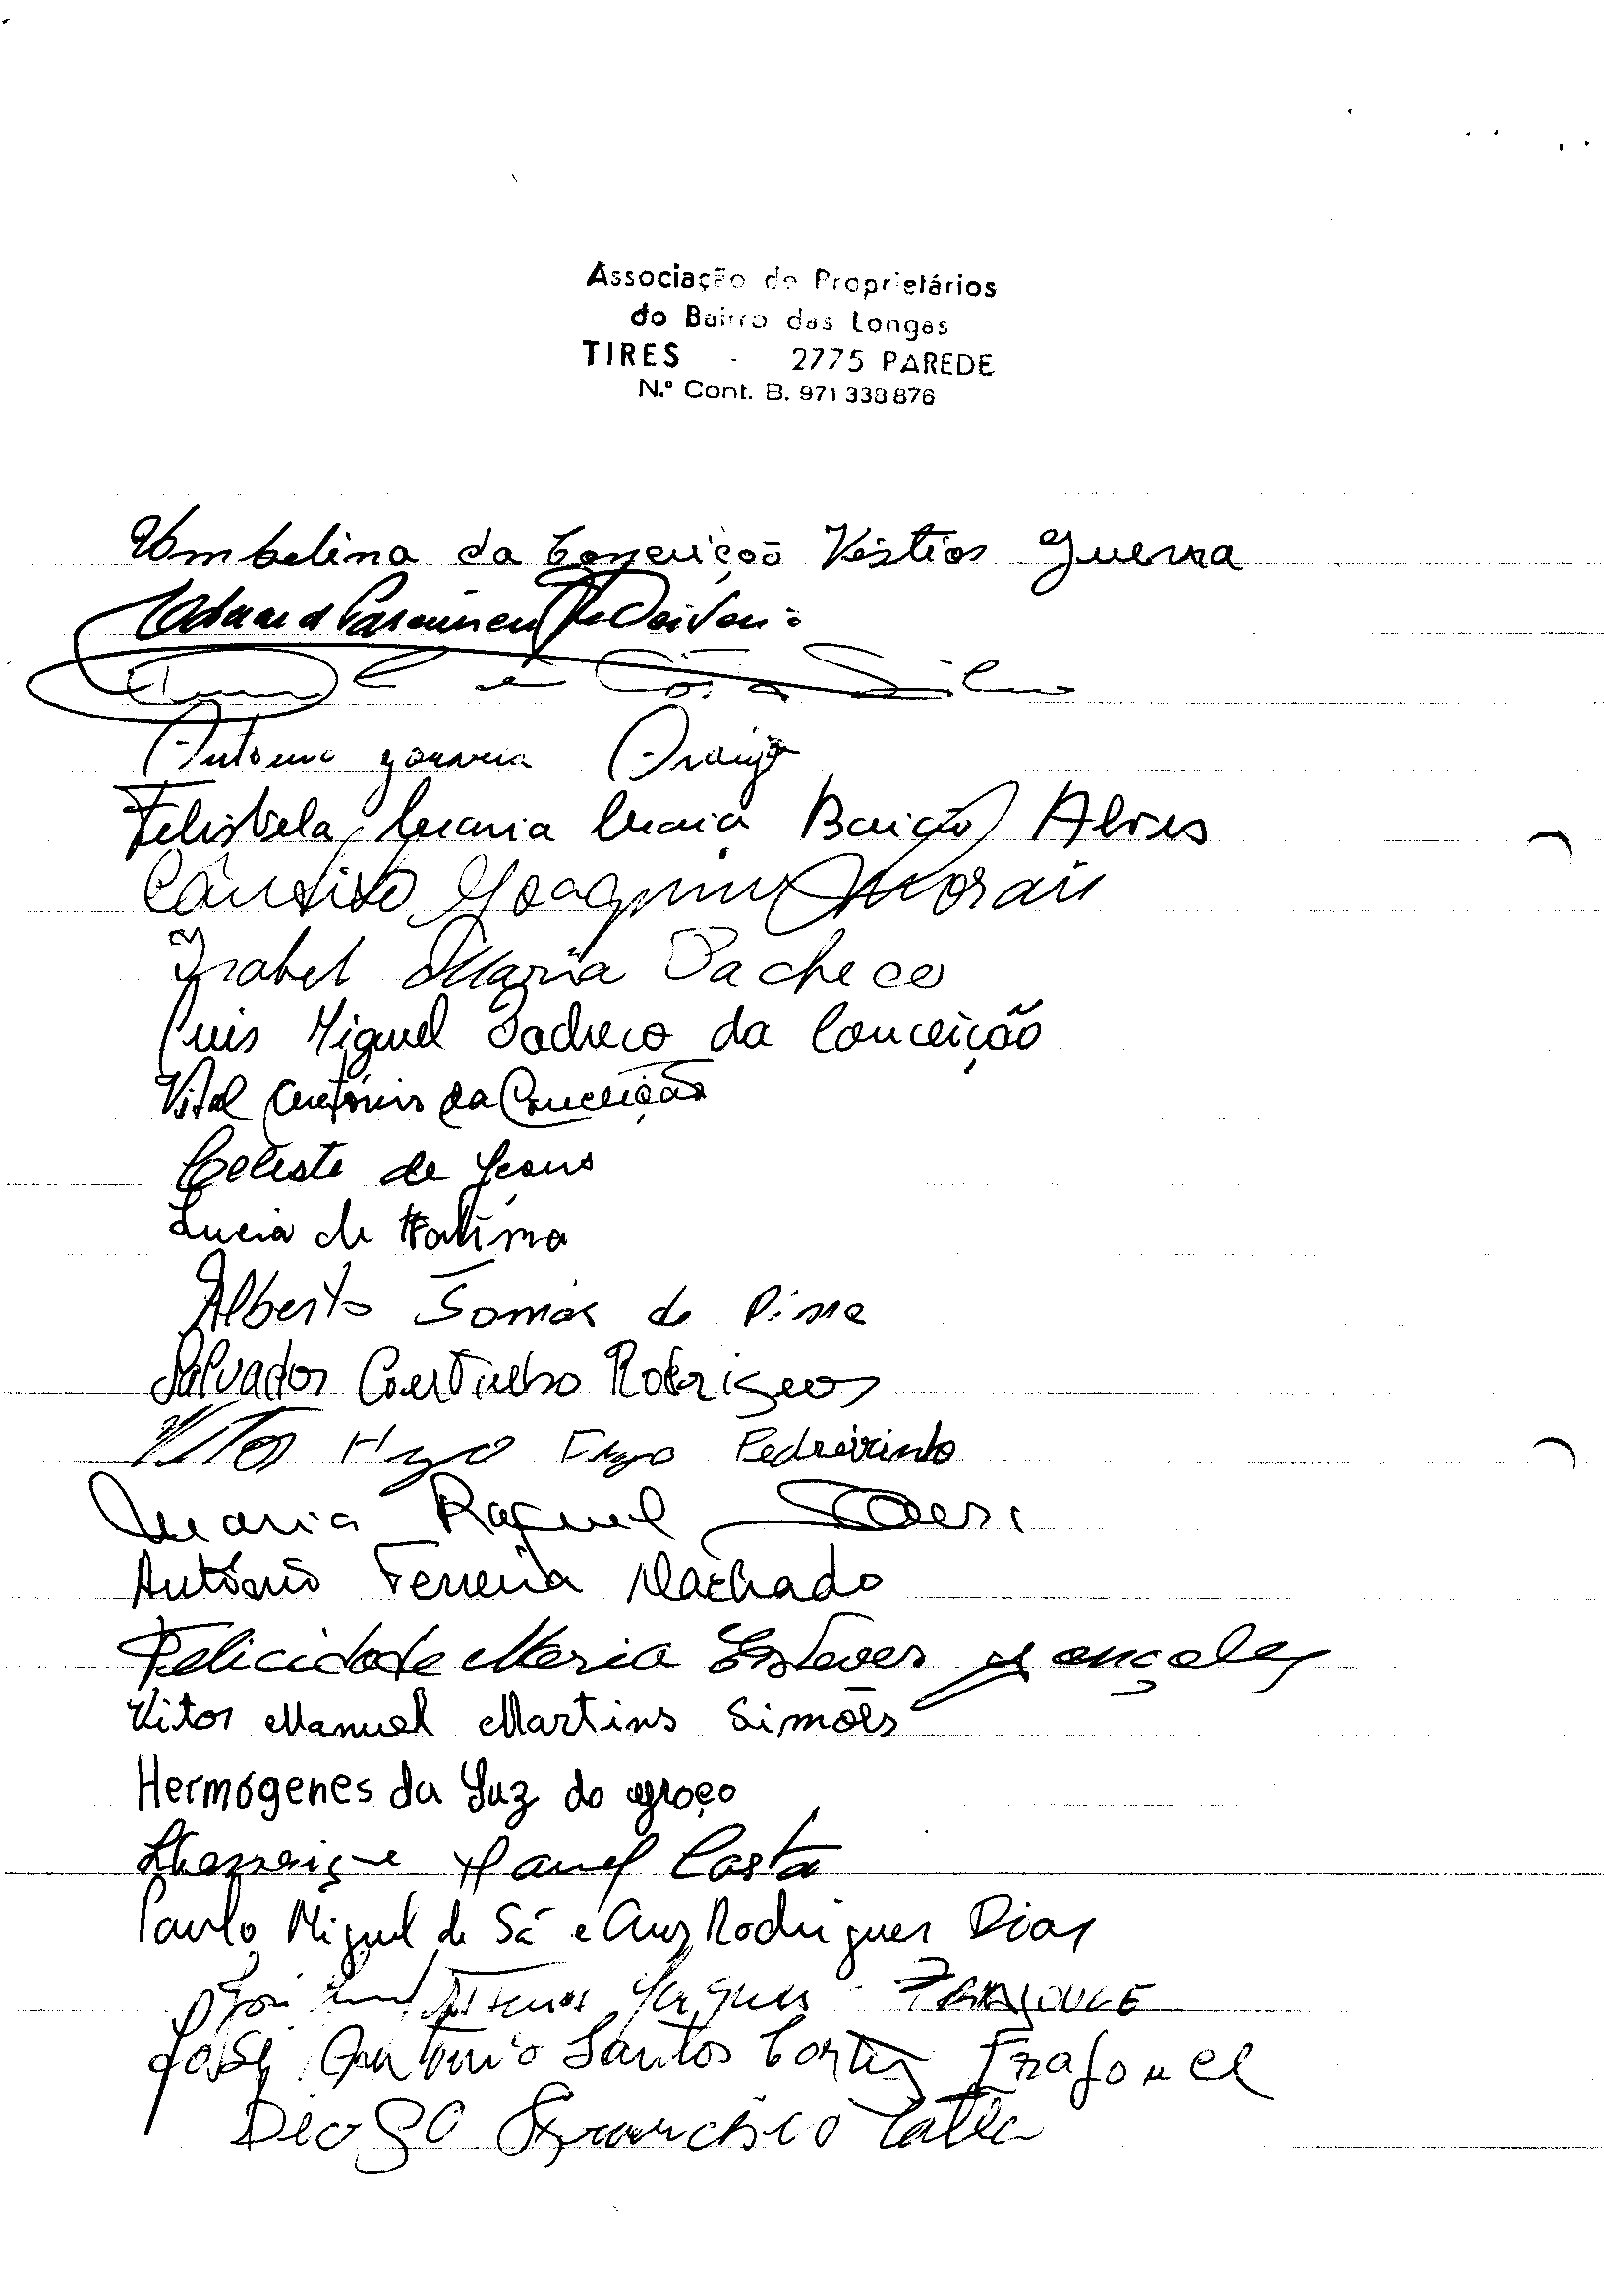 Associação de Proprietários
do Bairro das Longas
TIRES - 2775 PAREDE
N.º Cont. B. 971 338 876
Umbelina da Conceição Guerra
Silva
Antonio Gouveia Araujo
Felisbela Maria Maia Baião Alves
Cândido Joaquim Morais
Isabel Maria Pacheco
Luis Miguel Pacheco da Conceição
Vital António da Conceição
Celeste de Jesus
Lucia de Fatima
Alberto Tomás de Pina
Salvador Rodrigues
Vitor Hugo Pedreirinho
Maria Raquel
António Ferreira Machado
Felicidade Maria Esteves Gonçales
Vitor Manuel Martins Simões
Hermógenes da Luz do
Henrique Manuel Costa
Paulo Miguel de Sá e Cruz Rodrigues Dias
José
José António Santos Cortez
Diogo Francisco